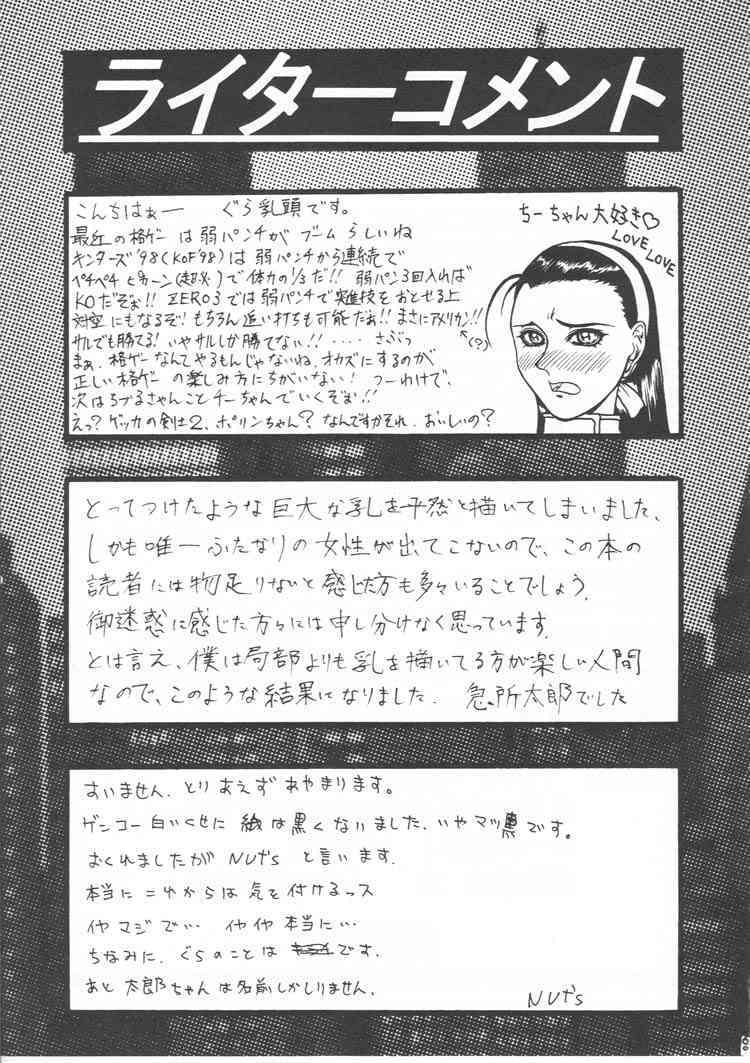 ライターコメント
こんちはぁー ぐら乳頭です。
最近の格ゲーは弱パンチがブームらしいね
キンターズ'98(KOF'98)は弱パンチから連続で
ペチペチ ピキーン(超必)で体力の1/3だ!! 弱パン3回入れば
KOだぞぉ!! ZERO3では弱パンチで突進技をおとせる上
対空にもなるぞ! もちろん追い打ちも可能だぁ!! まさにアメリカン!!
サルでも勝てる! いやサルしか勝てない!! ‥‥ さぶっ
まぁ、格ゲーなんてやるもんじゃないね、オカズにするのが
正しい格ゲーの楽しみ方にちがいない! つーわけで、
次はちづるさんことチーちゃんでいくぞぉ!!
えっ? ゲッカの剣士2、ポリンちゃん? なんですかそれ、おいしいの?
ちーちゃん大好き♡
LOVE
LOVE
(?)
とってつけたような巨大な乳を平然と描いてしまいました、
しかも唯一ふたなりの女性が出てこないので、この本の
読者には物足りないと感じた方も多々いることでしょう、
御迷惑に感じた方々には申し分けなく思っています、
とは言え、僕は局部よりも乳を描いてる方が楽しい人間
なので、このような結果になりました、 急所太郎でした
すいません、とりあえずあやまります。
ゲンコー白いくせに 絵は黒くないました、いやマッ黒です。
おくれましたが NUt's と言います、
本当に これからは 気を付けるっス
イヤ マジで… イヤイヤ 本当に…
ちなみに、ぐらのことは です。
あと 太郎ちゃんは名前しかしりません、
NUt's